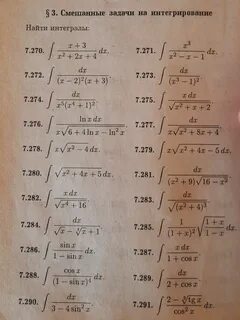 § 3. Смешанные задачи на интегрирование
Найти интегралы:
7.270. ∫ (x + 3)/(x² + 2x + 4) dx. 7.271. ∫ x³/(x² − x − 1) dx.
7.272. ∫ dx/((x − 2)²(x + 3)). 7.273. ∫ dx/(x³ − 1)².
7.274. ∫ dx/(x⁵(x⁴ + 1)²). 7.275. ∫ dx/√(x² + x + 2).
7.276. ∫ ln x dx/(x√(6 + 4 ln x − ln² x)). 7.277. ∫ dx/(x√(x² + 8x + 4)).
7.278. ∫ x√(x² − 4) dx. 7.279. ∫ x√(x² + 4x − 5) dx.
7.280. ∫ √(x² + 4x + 5) dx. 7.281. ∫ dx/((x² + 9)√(16 − x²)).
7.282. ∫ x dx/√(x⁴ + 16). 7.283. ∫ dx/(x²(x² + 4)³).
7.284. ∫ dx/(√x − ∛x + 1). 7.285. ∫ 1/(1 + x)² √((1 + x)/(1 − x)) dx.
7.286. ∫ sin x/(1 − sin x) dx. 7.287. ∫ dx/(1 + cos x).
7.288. ∫ cos x/(1 − sin x)⁴ dx. 7.289. ∫ dx/(2 + cos x).
7.290. ∫ dx/(3 − 4 sin² x). 7.291. ∫ (2 − ∛tg x)/cos² x dx.